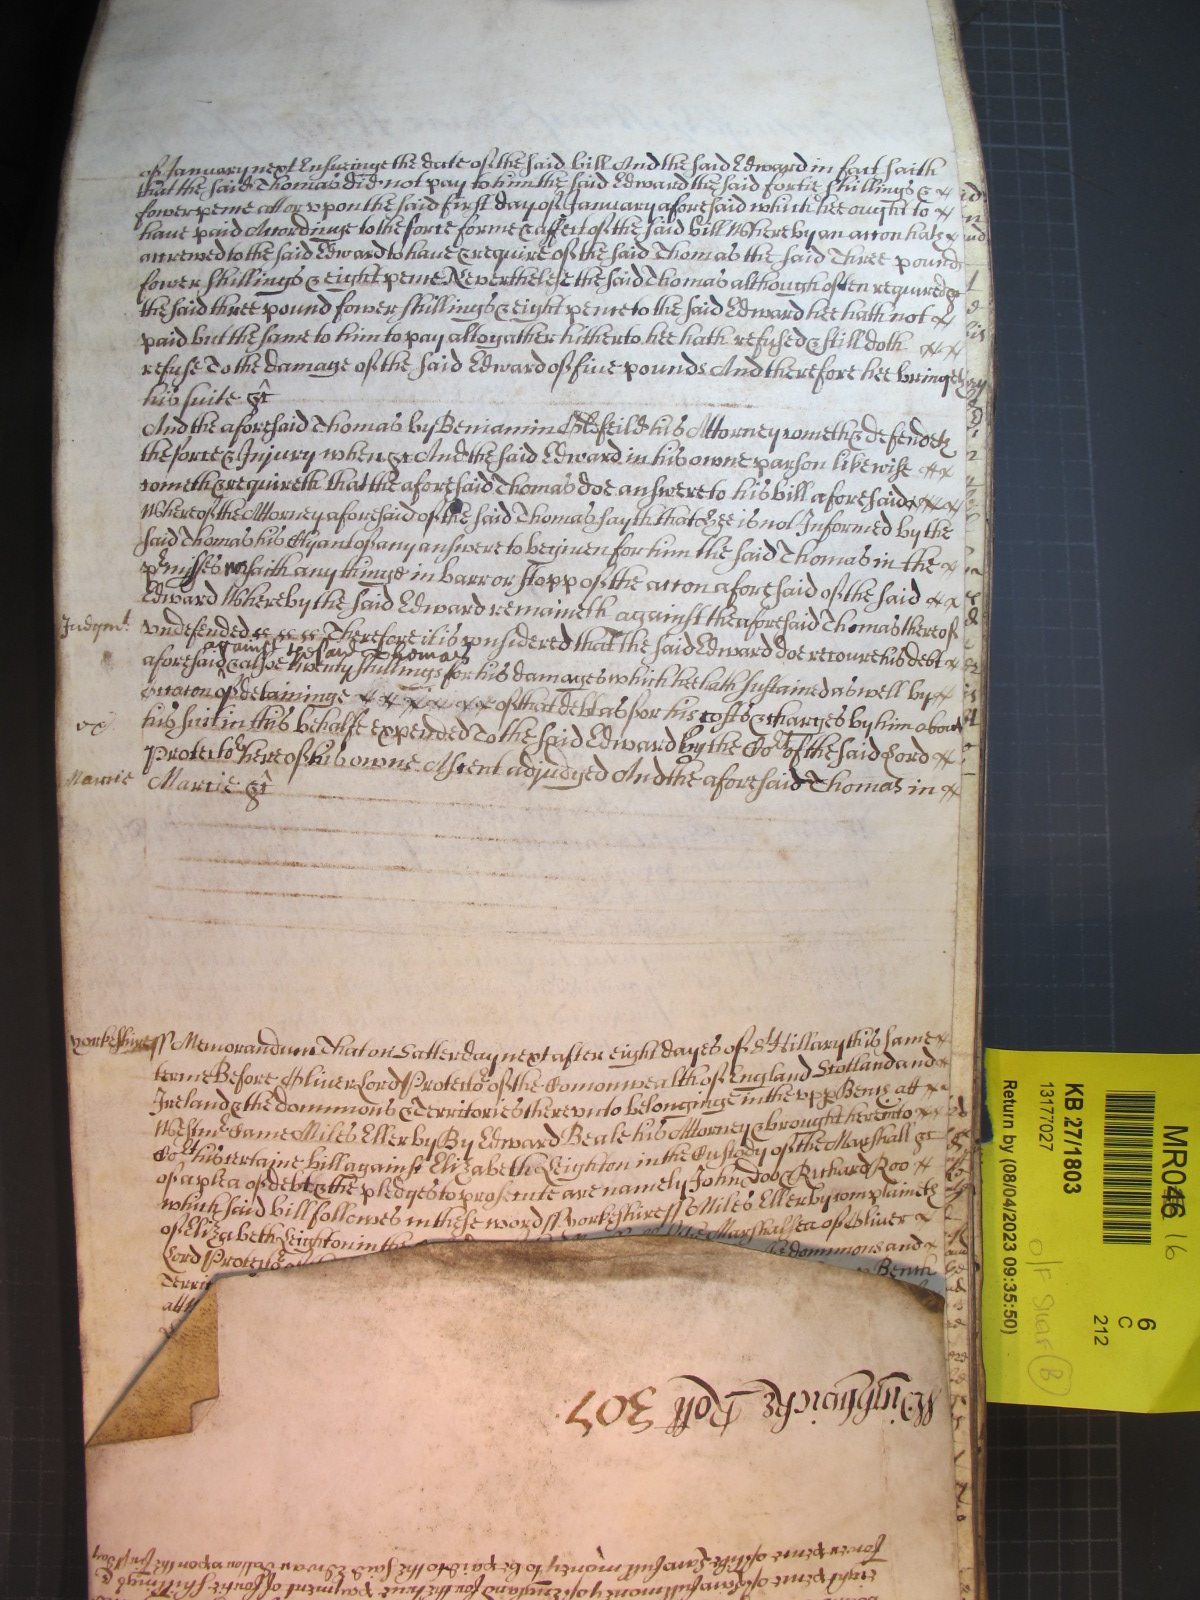 of January next Ensueinge the date of the said bill And the said Edward in fact saith
that the said Thomas did not pay to him the said Edward the said fortie shillings &
fower pence Mor vpon the said first day of January aforesaid which hee ought to
haue paid Accordinge to the force forme & effect of the said bill Whereby an accon hath
accrewed to the said Edward to haue & require of the said Thomas the said Three pounds
fower shillings & eight pence Neverthelesse the said Thomas although often required
the said three pound fower shillings & eight pence to the said Edward hee hath not
paid but the same to him to pay altogather hitherto hee hath refused & still doth
refuse To the damage of the said Edward of fiue pounds And therefore hee bringeth
his suite &c
And the aforesaid Thomas by Beniamin his Attorney cometh & defendeth
the force & Injury when &c And the said Edward in his owne parson likewise
cometh & requireth that the aforesaid Thomas doe answere to his bill aforesaid
Whereof the Attorney aforesaid of the said Thomas sayth that hee is not Informed by the
said Thomas his Clyant of any answere to be given for him the said Thomas in the
pmisses nor saith any thinge in barr or stopp of the accon aforesaid of the said
Edward Whereby the said Edward remaineth against the aforesaid Thomas thereof
Judgmt vndefended Therefore it is considered that the said Edward doe recouer his debt
against the said Thomas
aforesaid & alsoe twenty shillings for his damages which hee hath sustained as well by
occacon of detaininge of that debt as for his costs & charges by him about
ex his suit in this behalfe expended To the said Edward by the Cort of the said Lord
Protector here of his owne Assent adjudged And the aforesaid Thomas in
Marcie Marcie &c
Yorkeshire ss Memorandum That on Satterday next after eight dayes of St Hillary this same
terme Before Oliver Lord Protector of the Comonwealth of England Scotland and
Ireland & the dominions & Territories therevnto belonginge in the vpp Bench att
Westmr Came Miles Ellerby By Edward Beale his Attorney & brought here into
Cort his certaine bill against Elizabeth Leighton in the Custody of the Marshall &c
of a plea of debt & the pledges to prosecute are namely John Doo & Richard Roo
which said bill followes in these words ss Yorkeshire ss Miles Ellerby complaineth
of Elizabeth Leighton in the Marshalsea of Oliver
Lord Protector dominions and
Territ Bench
att
Wightwicke Roll 307
fower pence of like lawfull money to be paid to the said Edward vpon the first day
eight pence of lawfull money of England for the true payment of fortie shillings &
MR046 16
KB 27/1803
13177027
Return by (08/04/2023 09:35:50)
6
C
212
O/F Shelf B